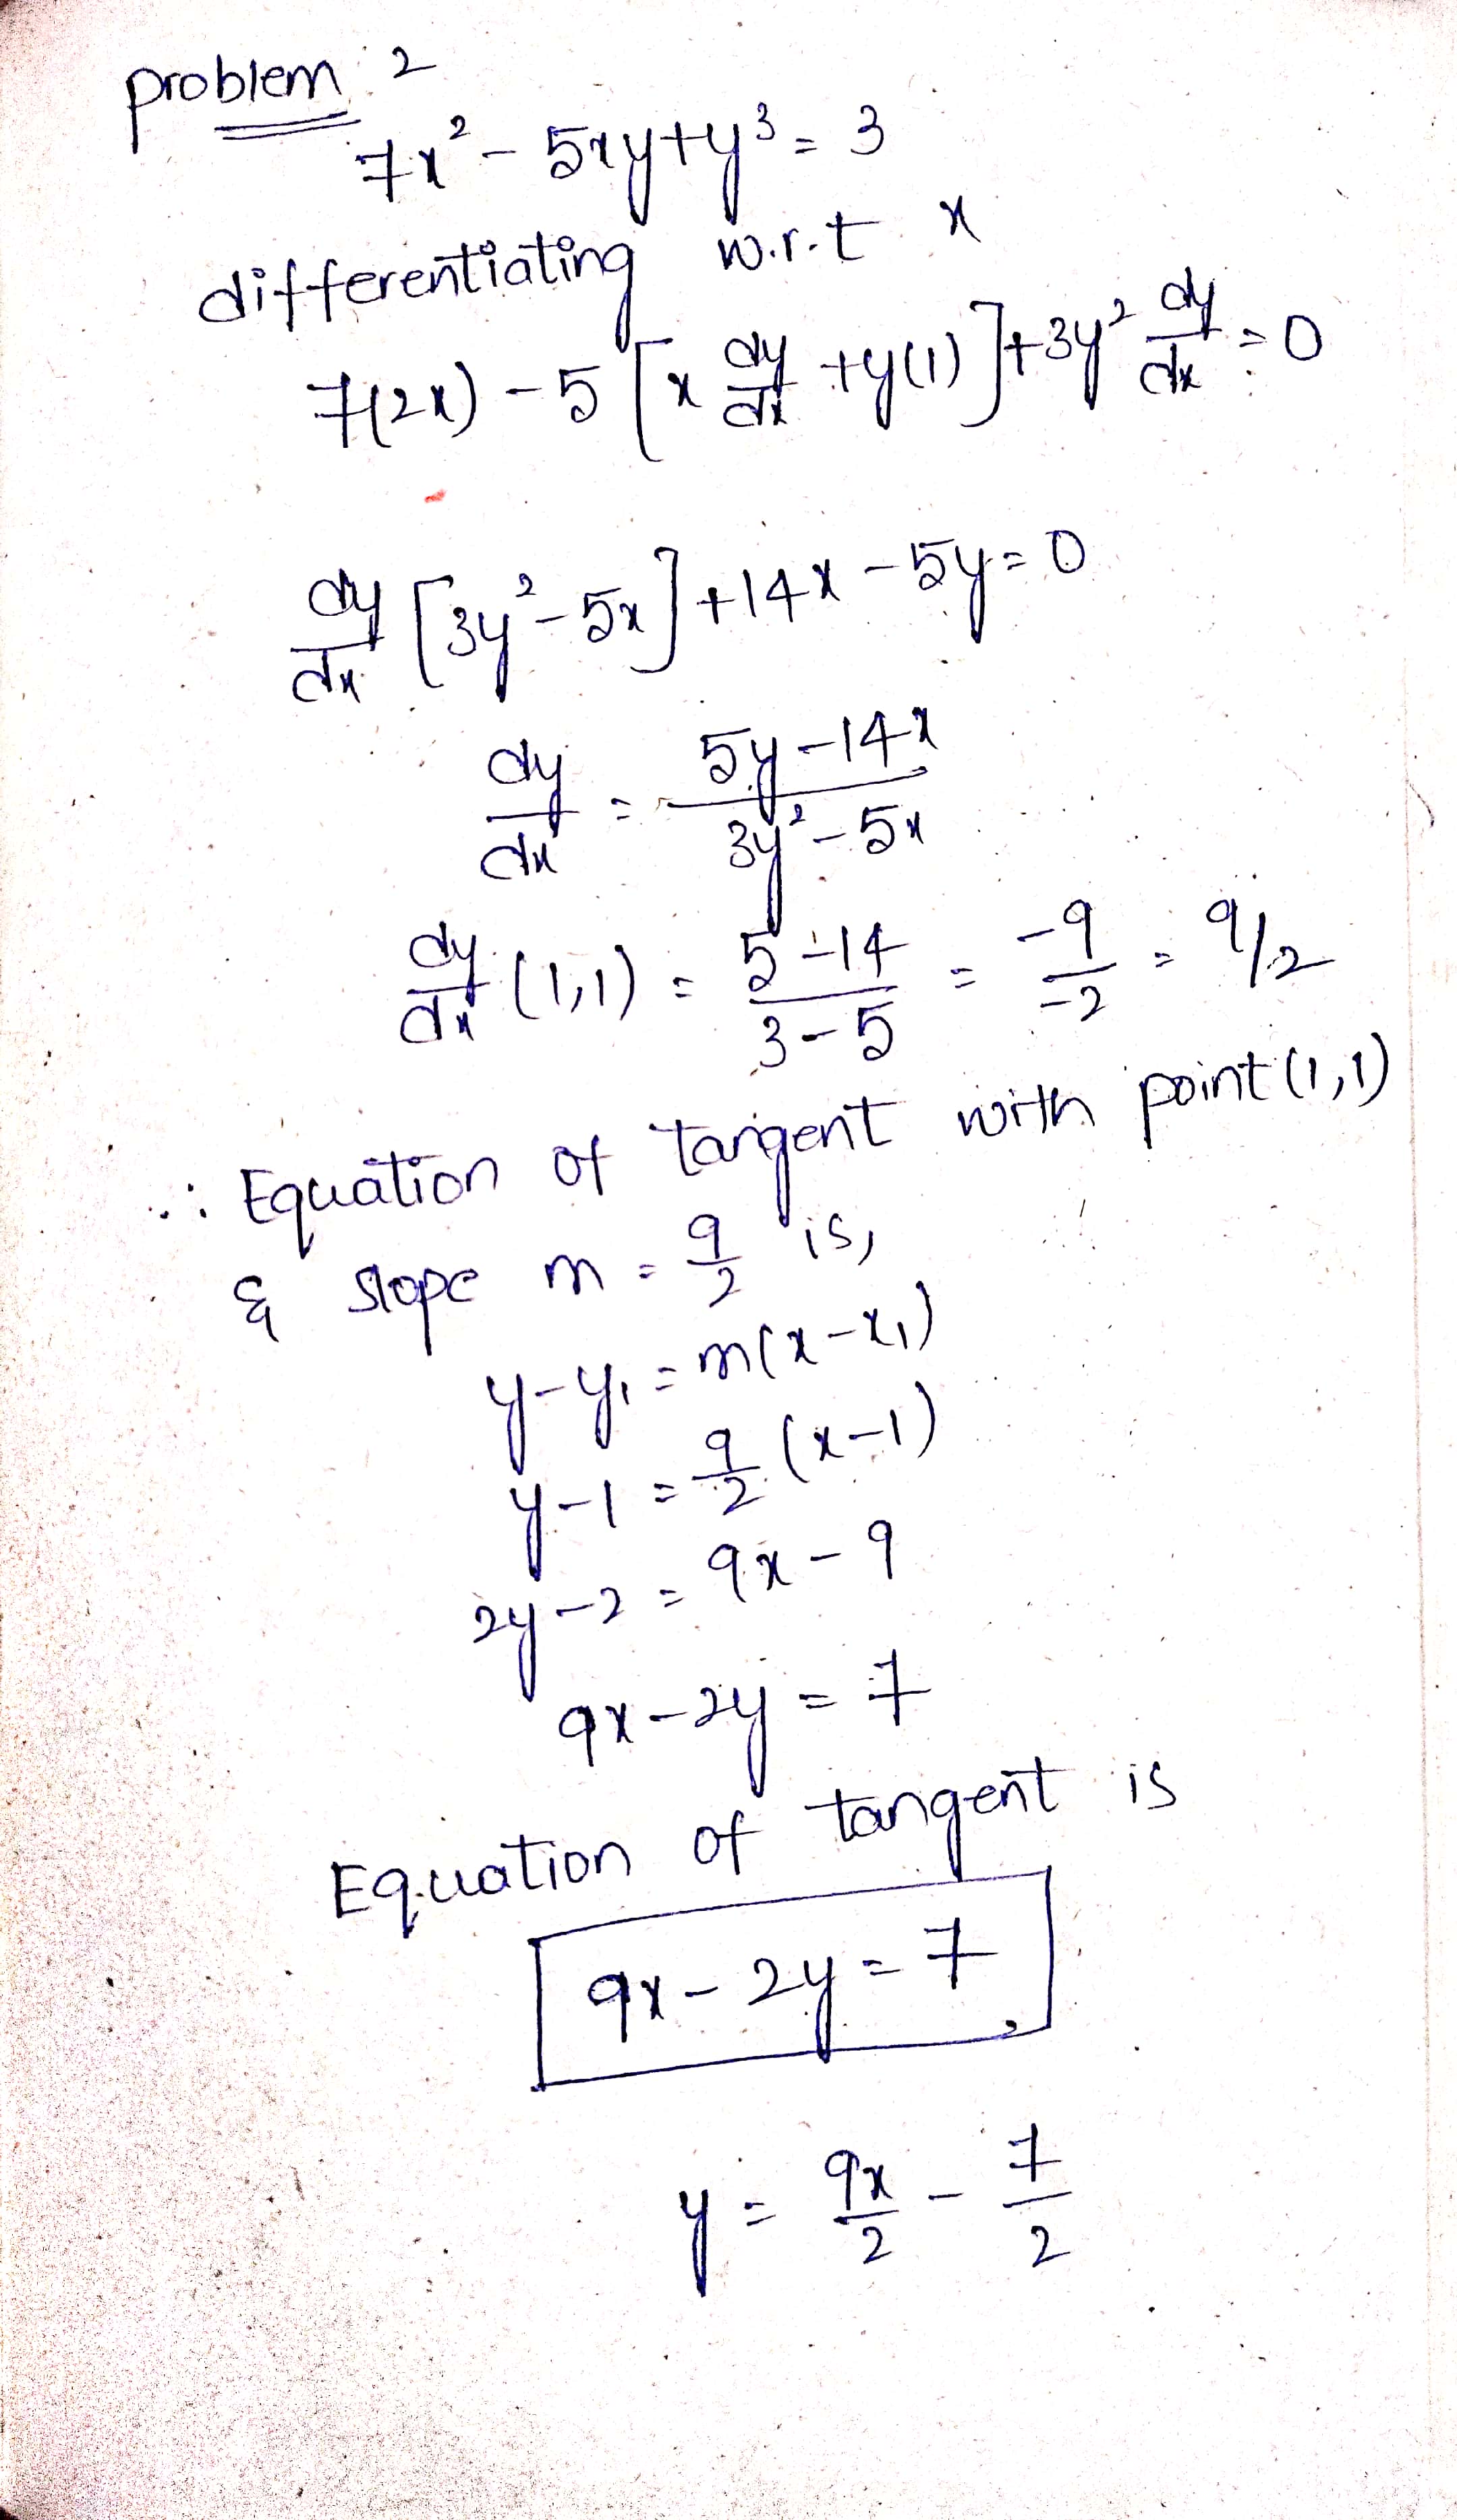 problem 2
7x² - 5xy + y³ = 3
differentiating w.r.t x
7(2x) - 5[x dy/dx + y(1)] + 3y² dy/dx = 0
dy/dx [3y² - 5x] + 14x - 5y = 0
dy/dx = (5y - 14x)/(3y² - 5x)
dy/dx (1,1) = (5 - 14)/(3 - 5) = -9/-2 = 9/2
∴ Equation of tangent with point (1,1)
& slope m = 9/2 is,
y - y₁ = m(x - x₁)
y - 1 = 9/2 (x - 1)
2y - 2 = 9x - 9
9x - 2y = 7
Equation of tangent is
9x - 2y = 7
y = 9x/2 - 7/2